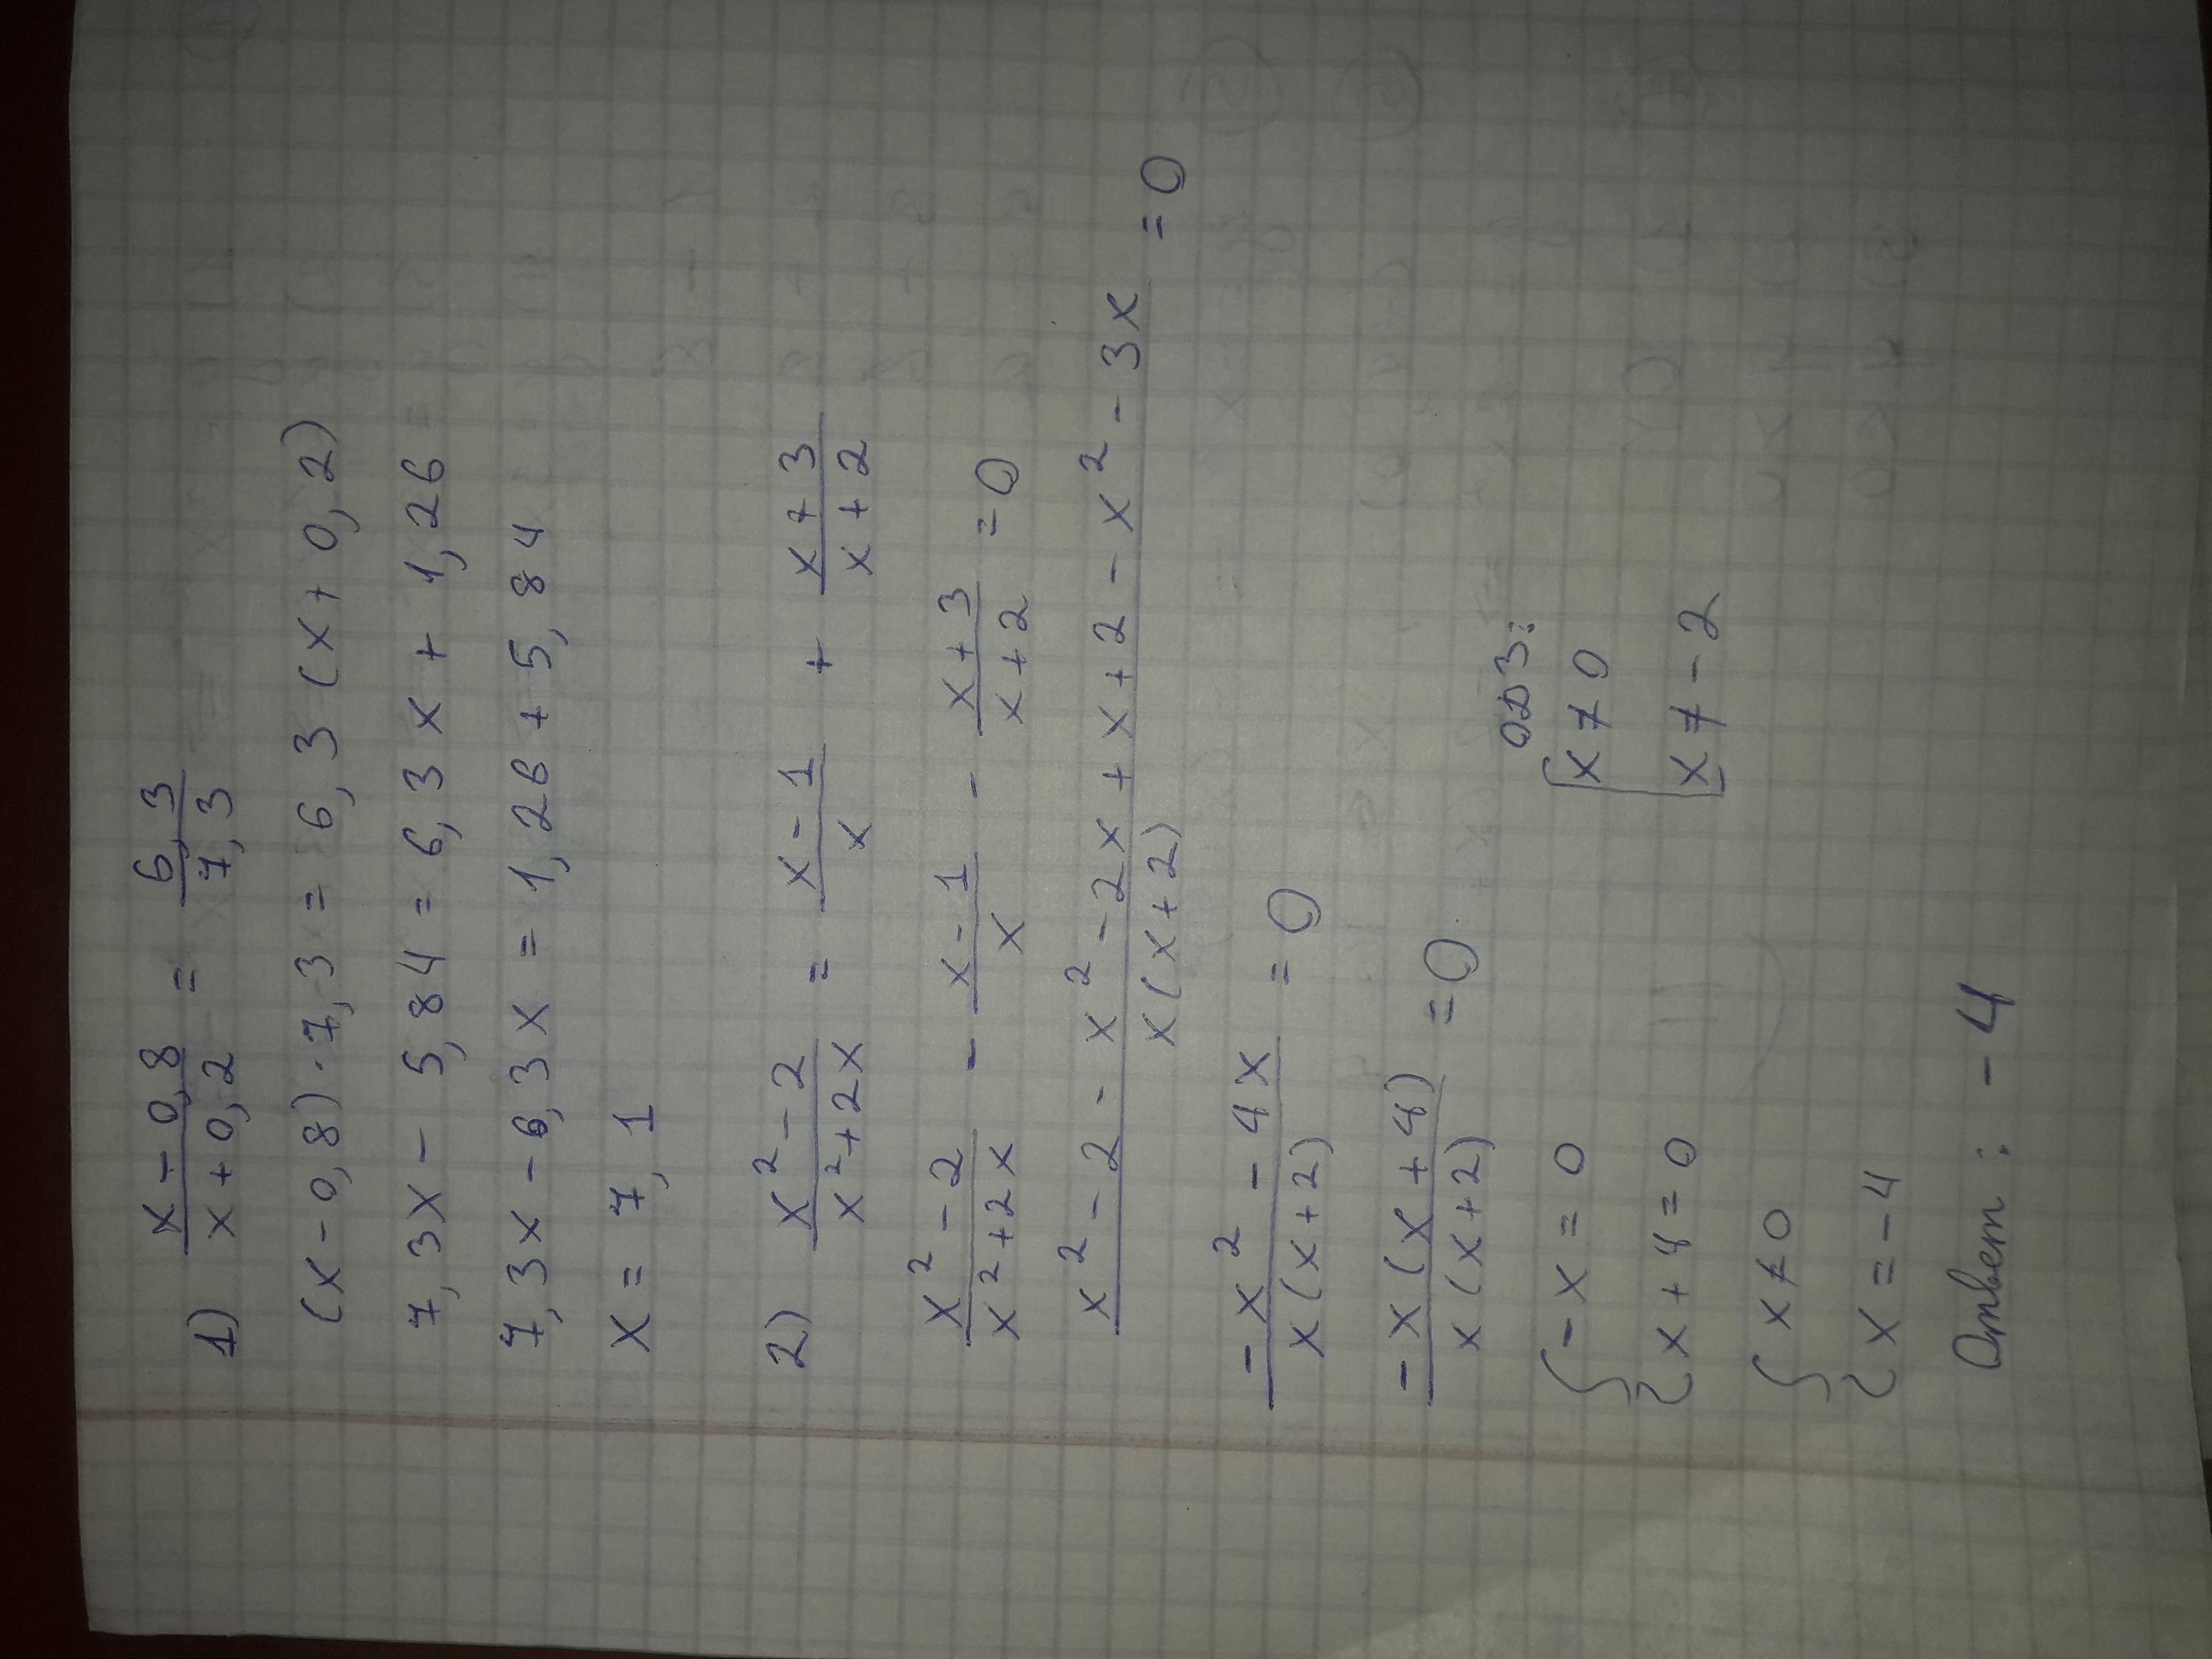 1) (x - 0,8)/(x + 0,2) = 6,3/7,3
(x - 0,8) · 7,3 = 6,3 (x + 0,2)
7,3x - 5,84 = 6,3x + 1,26
7,3x - 6,3x = 1,26 + 5,84
x = 7,1
2) (x² - 2)/(x² + 2x) = (x - 1)/x + (x + 3)/(x + 2)
(x² - 2)/(x² + 2x) - (x - 1)/x - (x + 3)/(x + 2) = 0
(x² - 2 - x² - 2x + x + 2 - x² - 3x)/(x(x + 2)) = 0
(-x² - 4x)/(x(x + 2)) = 0
(-x(x + 4))/(x(x + 2)) = 0
{ -x = 0
{ x + 4 = 0
ОДЗ:
[ x ≠ 0
[ x ≠ -2
{ x ≠ 0
{ x = -4
Ответ: -4